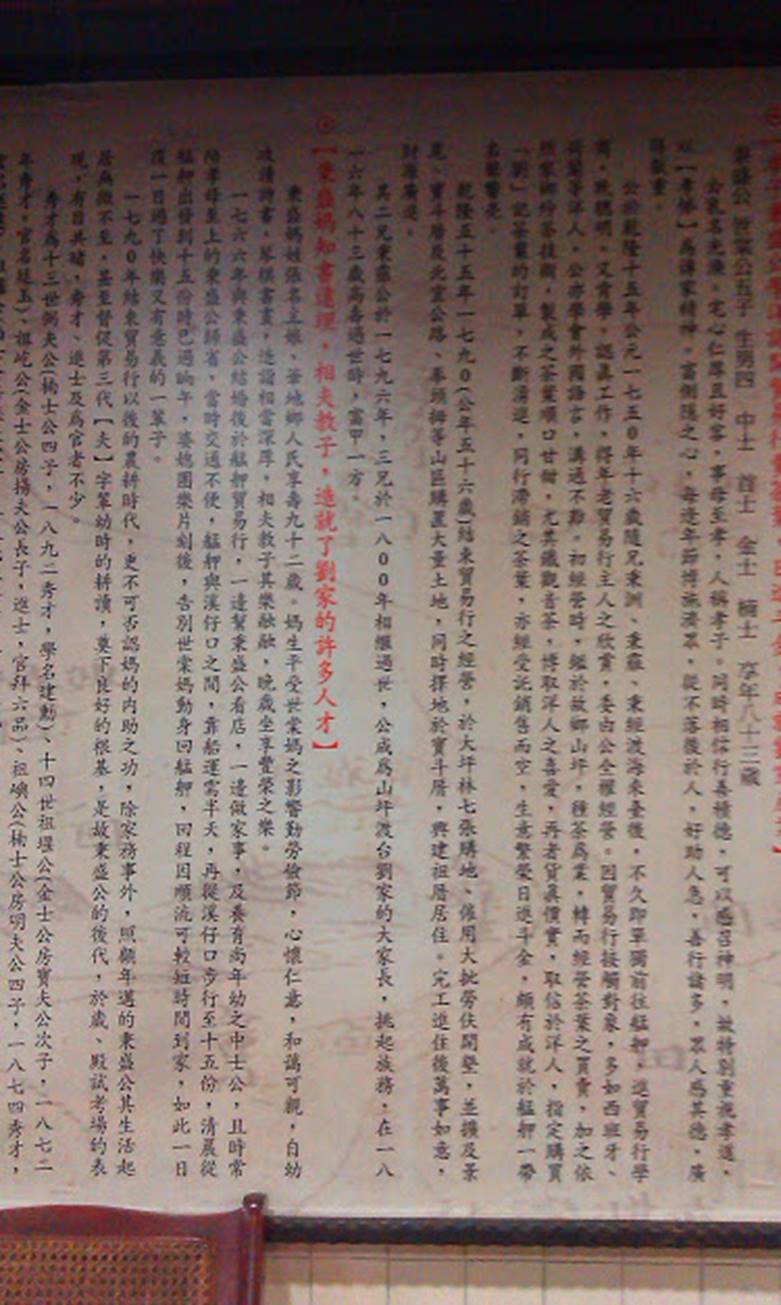 秉盛公 世棠公五子 生男四 中士 首士 金士 楠士 享年八十三歲
公乳名光漁,宅心仁厚且好客,事母至孝,人稱孝子。同時相信行善積德,可以感召神明,故特別重視孝道,
以【孝悌】為傳家精神。富惻隱之心,每逢年節博施濟眾,從不落後於人,好助人急,善行諸多,眾人感其德,廣
得敬重。
公於乾隆十五年公元一七五0年十六歲隨兄秉渊、秉蘊、秉經渡海來臺後,不久即單獨前往艋舺,進貿易行學
商,執聰明,又肯學,認真工作,得年老貿易行主人之欣賞,委由公全權經營。因貿易行接觸對象,多如西班牙、
荷蘭等洋人,公亦學會外國語言,溝通不難。初經營時,鑑於故鄉山坪,種茶為業,轉而經營茶葉之買賣,加之依
照家鄉炒茶技術,製成之茶葉順口甘甜,尤其鐵觀音茶,博取洋人之喜愛,再者貨真價實,取信於洋人,指定購買
「劉」記茶葉的訂單,不斷湧進,同行滯銷之茶葉,亦經受託銷售而空,生意繁榮日進斗金,頗有成就於艋舺一帶
名聲響亮。
乾隆五十五年一七九0(公年五十六歲)結束貿易行之經營,於大坪林七張購地、僱用大批勞伕開墾,並擴及景
尾、寶斗厝及北宜公路、車頭拇等山區購置大量土地,同時擇地於寶斗厝,興建祖厝居住。完工進住後萬事如意,
財源廣進。
其二兄秉蘊公於一七九六年,三兄於一八00年相繼過世,公成為山坪渡台劉家的大家長,挑起族務,在一八
一六年八十三歲高壽過世時,富甲一方。
⊙【秉盛媽知書達理,相夫教子,造就了劉家的許多人才】
秉盛媽姓張名五娘、筆地鄉人氏享壽九十二歲。媽生平受世棠媽之影響勤勞儉節,心懷仁意,和藹可親,自幼
攻讀詩書,琴棋書畫,造詣相當深厚,相夫教子其樂融融,晚歲坐享豐榮之樂。
一七六六年與秉盛公結婚後於艋舺貿易行,一邊幫秉盛公看店,一邊做家事,及養育尚年幼之中士公,且時常
陪孝母至上的秉盛公歸省,當時交通不便,艋舺與溪仔口之間,靠船運需半天,再從溪仔口步行至十五份,清晨從
艋舺出發到十五份時已過晌午,婆媳團樂片刻後,告別世棠媽動身回艋舺,回程因順流可較短時間到家,如此一日
復一日過了快樂又有意義的一輩子。
一七九0年結束貿易行以後的農耕時代,更不可否認媽的內助之功,除家務事外,照顧年邁的秉盛公其生活起
居無微不至,甚至督促第三代【夫】字輩幼時的耕讀,奠下良好的根基,是故秉盛公的後代,於歲、殿試考場的表
現,有目共睹,秀才、進士及為官者不少。
秀才為十三世弼夫公(楠士公四子,一八九二秀才,學名建勳)、十四世祖堪公(金士公房寶夫公次子,一八七二
年秀才,官名廷玉)、祖屹公(金士公房揚夫公長子,進士,官拜六品)、祖嶼公(楠士公房明夫公四子,一八七四秀才,